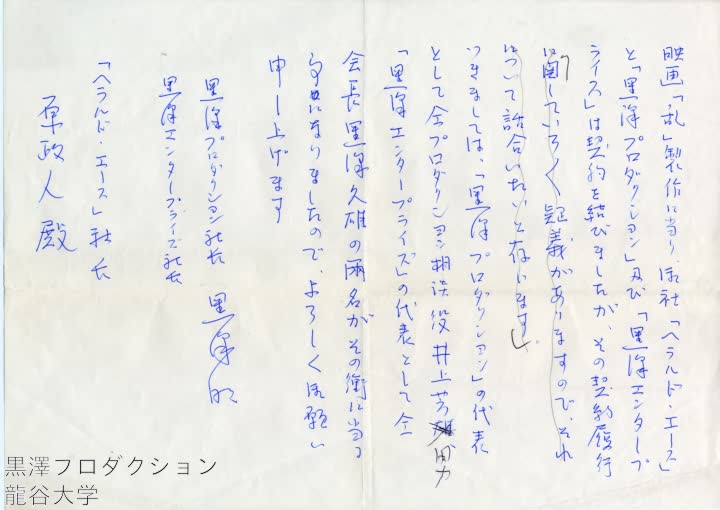 映画「乱」製作に当り、御社「ヘラルド・エース」
と「黒澤プロダクション」及び「黒澤エンタープ
ライズ」は契約を結びましたが、その契約履行
に関していろ〱疑義がありますので、それ
について話合いたいと存じます。
つきましては、「黒澤プロダクション」の代表
として仝プロダクション相談役井上芳男
「黒澤エンタープライズ」の代表として仝
会長黒澤久雄の両名がその衝に当る
事になりましたので、よろしく御願い
申し上げます
黒澤プロダクション社長
黒澤エンタープライズ社長
黒澤明
「ヘラルド・エース」社長
原政人殿
黒澤プロダクション
龍谷大学